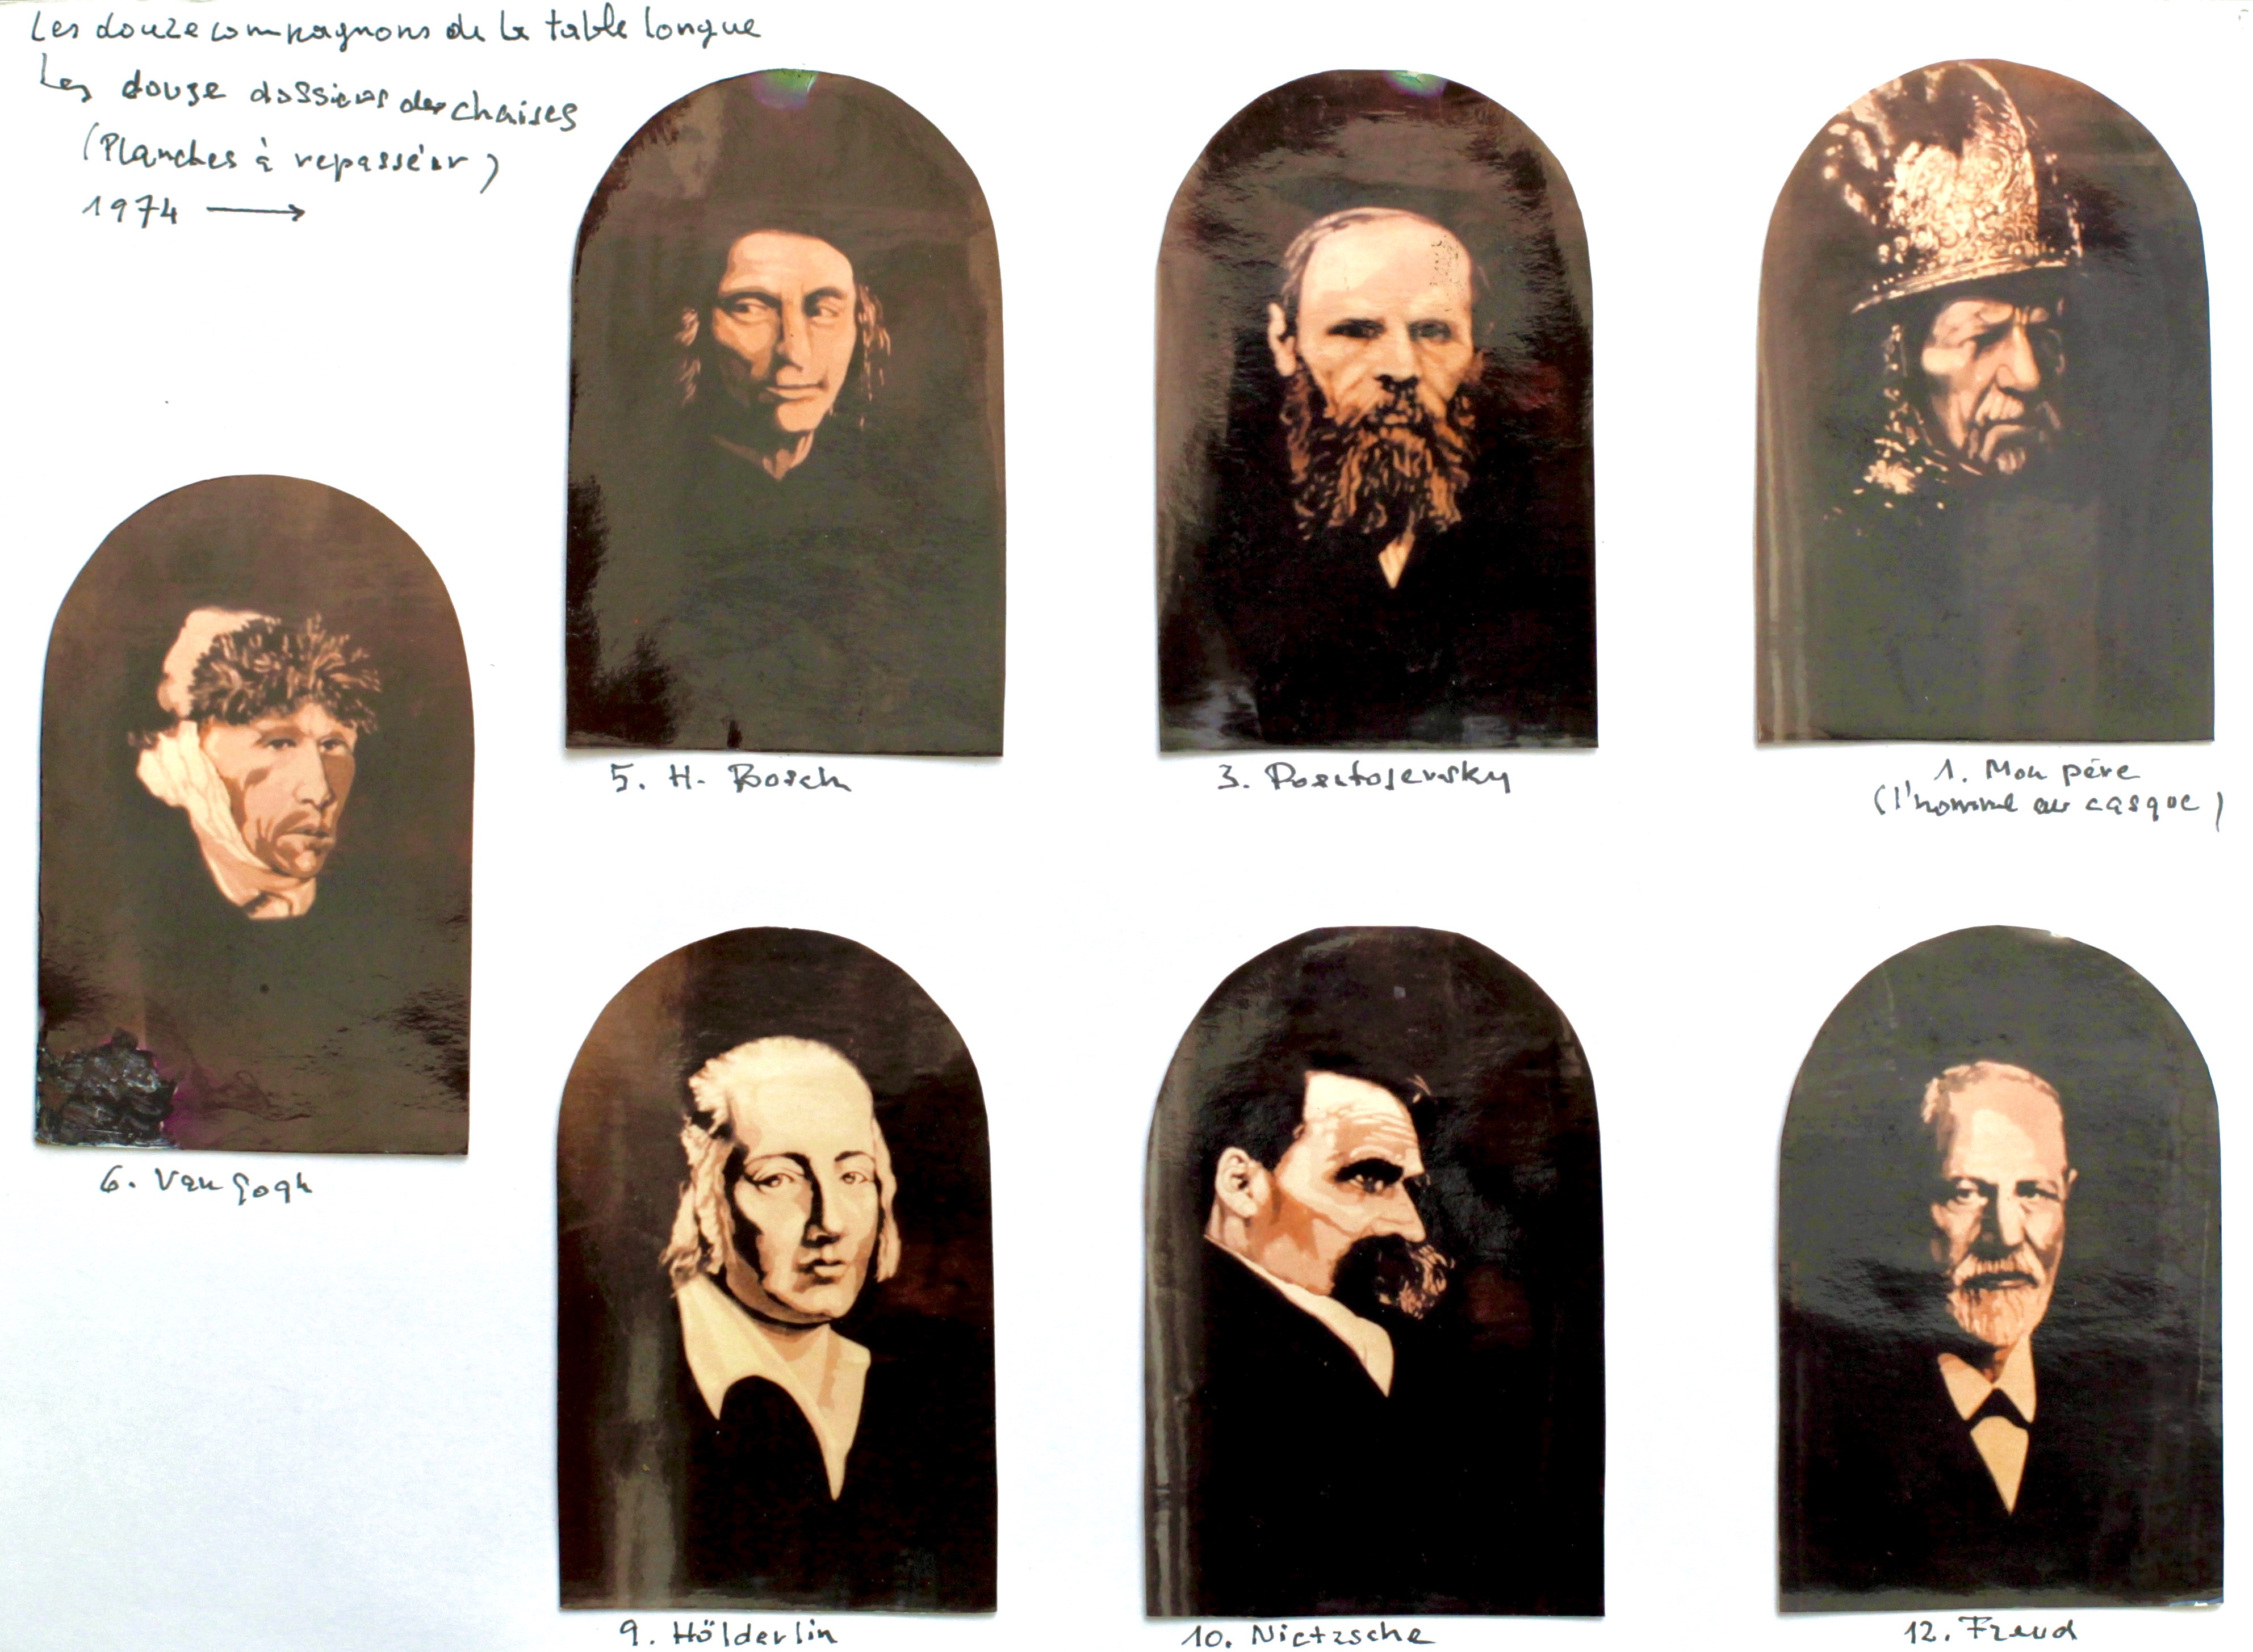 Les douze compagnons de la table longue
Les douze dossiers des chaises
(Planches à repasséer)
1974 →
5. H. Bosch
3. Dostojevsky
1. Mon père
(l'homme au casque)
6. Van Gogh
9. Hölderlin
10. Nietzsche
12. Freud